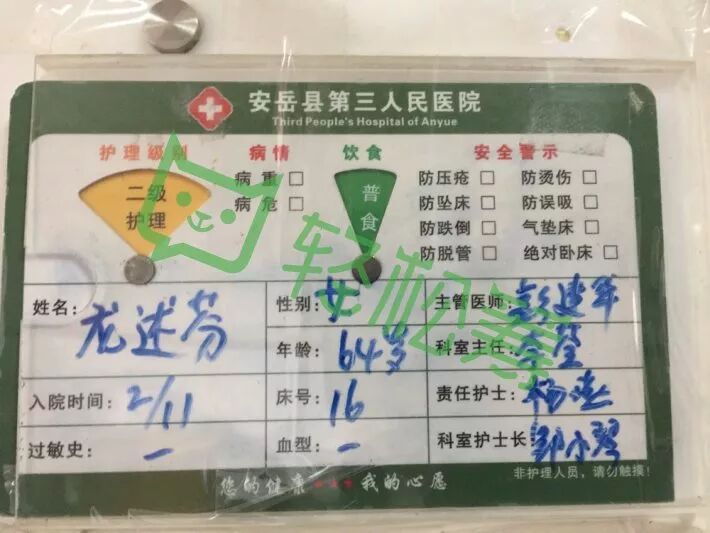 安岳县第三人民医院
Third People's Hospital of Anyue
护理级别 病情 饮食 安全警示
二级护理
病重 □
病危 □
普食
防压疮 □ 防烫伤 □
防坠床 □ 防误吸 □
防跌倒 □ 气垫床 □
防脱管 □ 绝对卧床 □
轻松筹
姓名: 龙述芬 性别: 女 主管医师: 彭建军
年龄: 64岁 科室主任:
入院时间: 2/11 床号: 16 责任护士: 杨
过敏史: 一 血型: 一 科室护士长:
非护理人员,请勿触摸!
您的健康 我的心愿